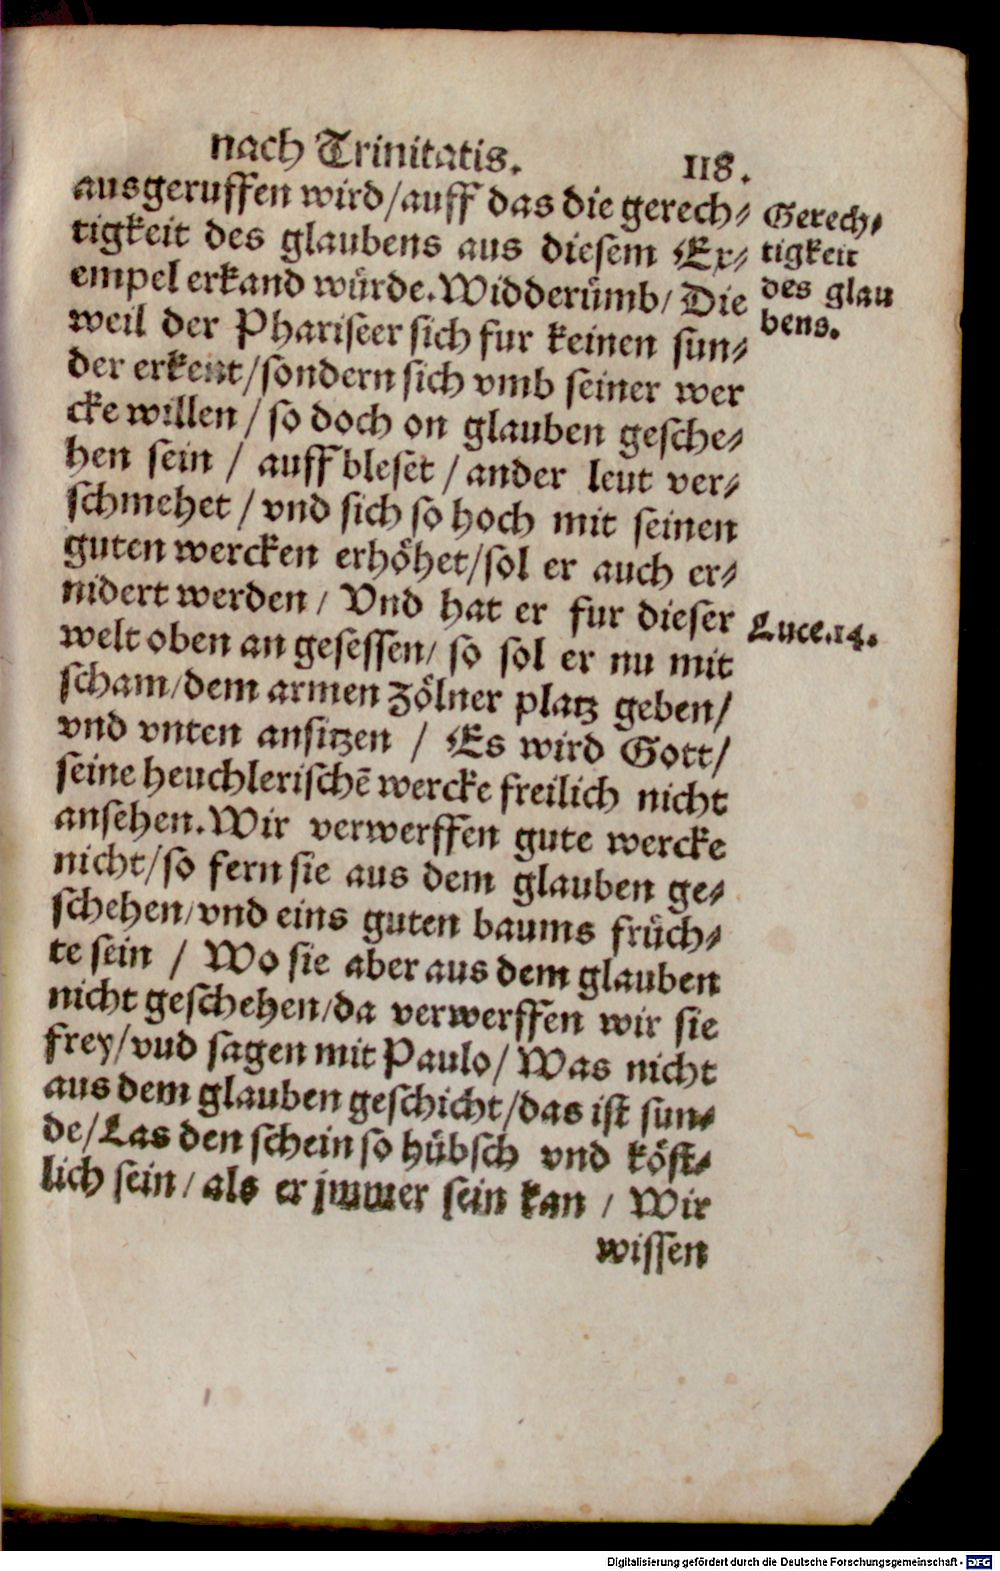 nach Trinitatis. 118.
ausgeruffen wird/auff das die gerech⸗
tigkeit des glaubens aus diesem Ex⸗
empel erkand würde. Widderümb/ Die
weil der Phariseer sich fur keinen sun⸗
der erkent/sondern sich vmb seiner wer
cke willen / so doch on glauben gesche⸗
hen sein / auff bleset / ander leut ver⸗
schmehet / vnd sich so hoch mit seinen
guten wercken erhöhet/sol er auch er⸗
nidert werden / Vnd hat er fur dieser
welt oben an gesessen/ so sol er nu mit
scham/dem armen Zölner platz geben/
vnd vnten ansitzen / Es wird Gott/
seine heuchlerischẽ wercke freilich nicht
ansehen. Wir verwerffen gute wercke
nicht/so fern sie aus dem glauben ge⸗
schehen/vnd eins guten baums früch⸗
te sein / Wo sie aber aus dem glauben
nicht geschehen/da verwerffen wir sie
frey/vud sagen mit Paulo/ Was nicht
aus dem glauben geschicht/das ist sun⸗
de/Las den schein so hübsch vnd köst⸗
lich sein/ als er jmmer sein kan / Wir
wissen
Gerech⸗
tigkeit
des glau
bens.
Luce.14.
Digitalisierung gefördert durch die Deutsche Forschungsgemeinschaft - DFG